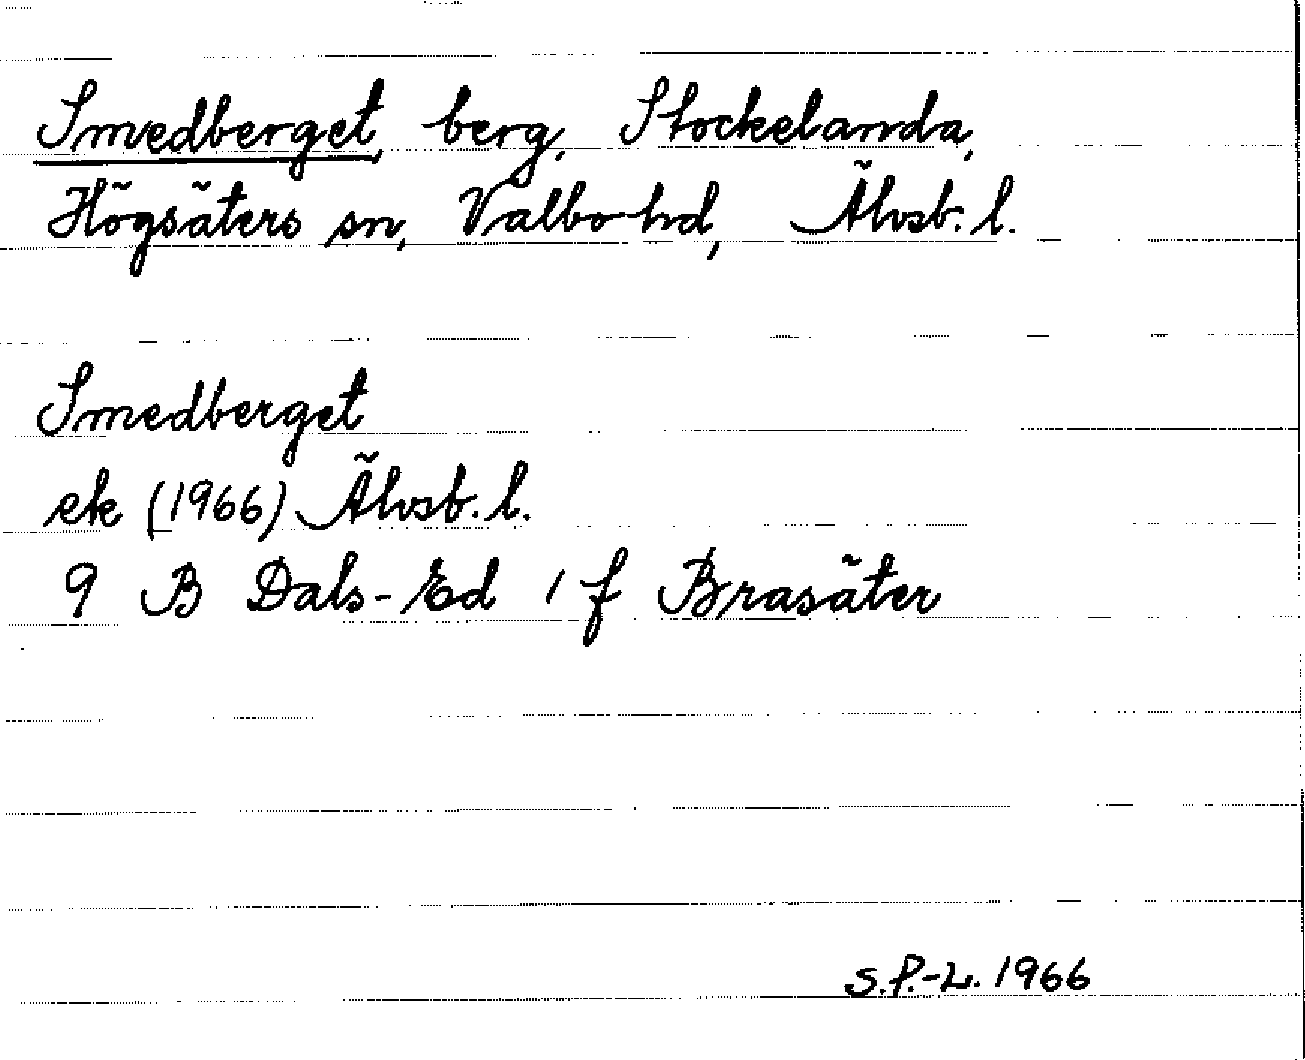 Smedberget, berg, Stockelanda,
Högsäters sn, Valbo hd, Älvsb. l.
Smedberget
ek (1966) Älvsb. l.
9 B Dals-Ed 1 f Brasäter
S.P.-L. 1966